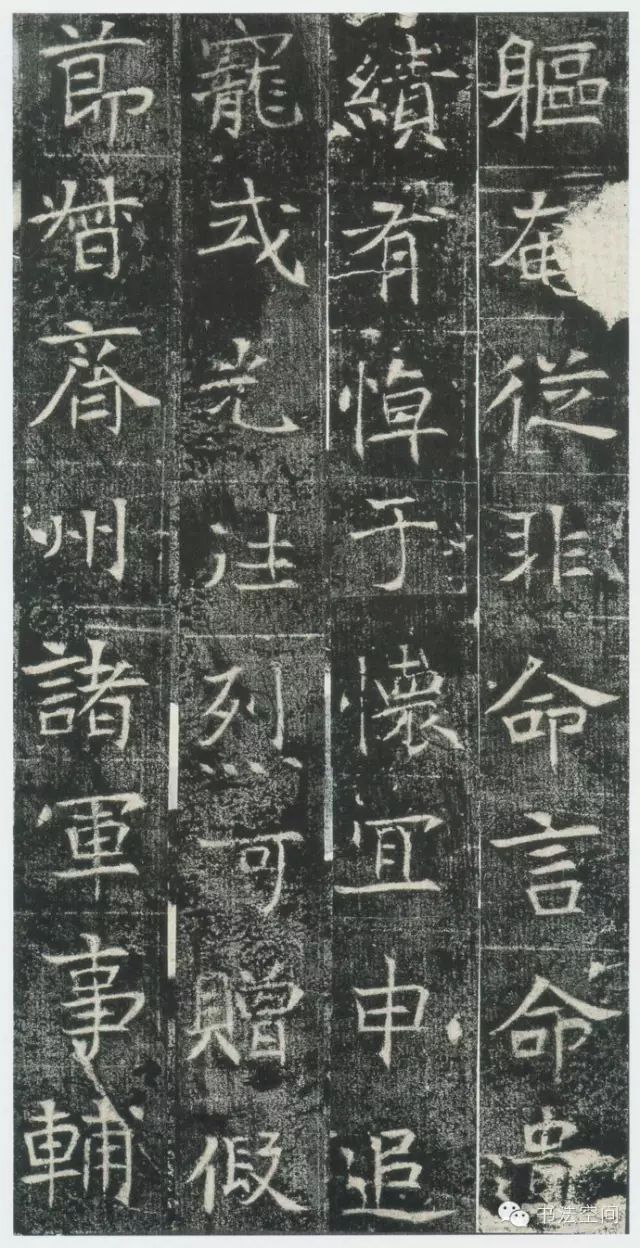 軀奄從非命言命遺
績有悼于懷宜申追
寵式光注烈可贈假
節督齊州諸軍事輔
书法空间